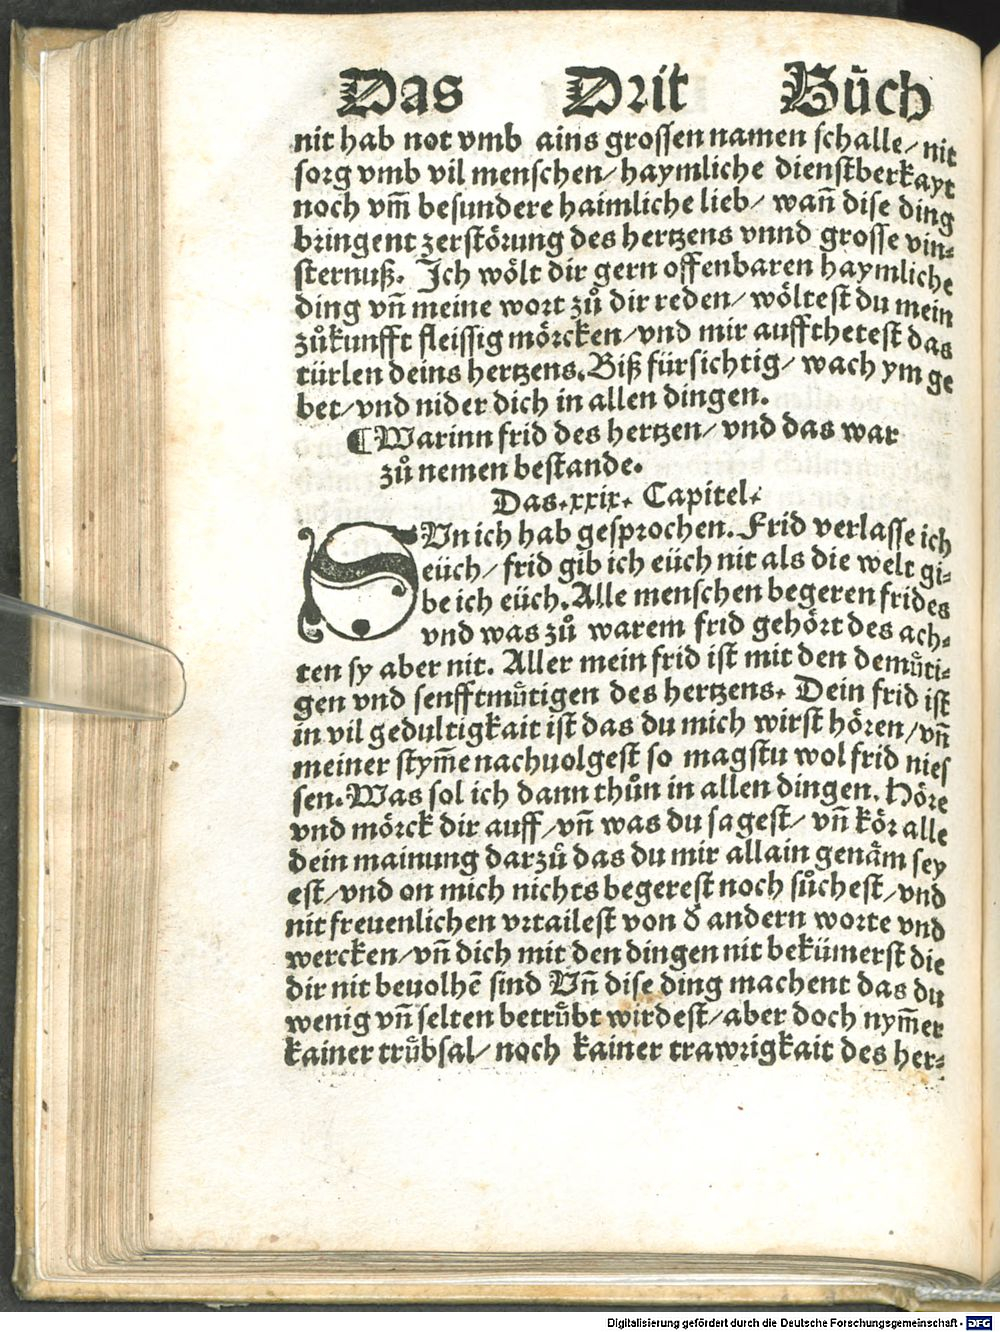 Das Drit Bůch
nit hab not vmb ains grossen namen schalle/ nit
sorg vmb vil menschen/ haymliche dienstberkayt
noch vm̃ besundere haimliche lieb/ wañ dise ding
bringent zerstörung des hertzens vnnd grosse vin⸗
sternuß. Ich wölt dir gern offenbaren haymliche
ding vñ meine wort zů dir reden/ wöltest du mein
zůkunfft fleissig mörcken/ vnd mir auffthetest das
türlen deins hertzens. Biß fürsichtig/ wach ym ge
bet/ vnd nider dich in allen dingen.
¶ Warinn frid des hertzen/ vnd das war
zů nemen bestande.
Das .xxix. Capitel.
SVn ich hab gesprochen. Frid verlasse ich
eüch/ frid gib ich eüch nit als die welt gi⸗
be ich eüch. Alle menschen begeren frides
vnd was zů warem frid gehört des ach⸗
ten sy aber nit. Aller mein frid ist mit den demuͤti⸗
gen vnd senfftmuͤtigen des hertzens. Dein frid ist
in vil gedultigkait ist das du mich wirst hören/ vñ
meiner stym̃e nachuolgest so magstu wol frid nies
sen. Was sol ich dann thůn in allen dingen. Höre
vnd mörck dir auff/ vñ was du sagest/ vñ kör alle
dein mainung darzů das du mir allain genäm sey
est/ vnd on mich nichts begerest noch sůchest/ vnd
nit freuenlichen vrtailest von d̕ andern worte vnd
wercken/ vñ dich mit den dingen nit bekümerst die
dir nit beuolhẽ sind Vñ dise ding machent das du
wenig vñ selten betruͤbt wirdest/ aber doch nym̃er
kainer truͤbsal/ noch kainer trawrigkait des her⸗
Digitalisierung gefördert durch die Deutsche Forschungsgemeinschaft - DFG